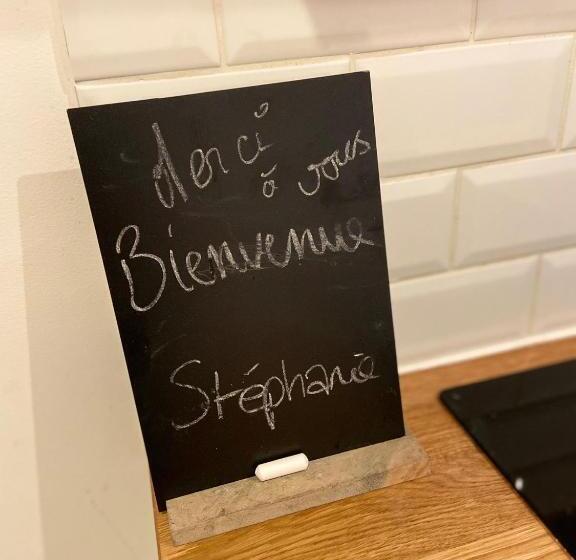 Merci
à vous
Bienvenue
Stéphanie